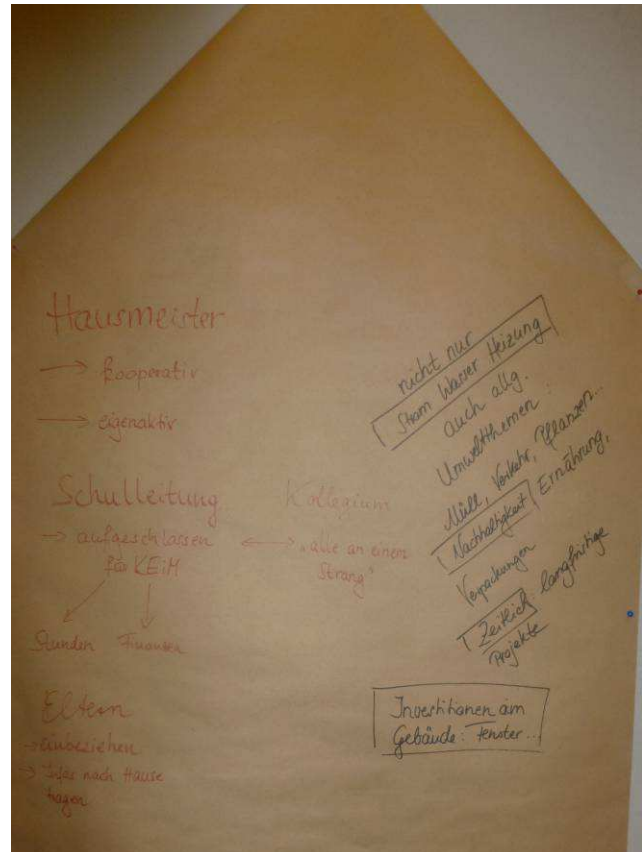 Hausmeister
→ kooperativ
→ eigenaktiv
Schulleitung
→ aufgeschlossen
für KEiM
Stunden Finanzen
Kollegium
↔ „alle an einem
Strang"
Eltern
→ einbeziehen
→ Infos nach Hause
tragen
nicht nur
Strom Wasser Heizung
auch allg.
Umweltthemen:
Müll, Verkehr, Pflanzen...
Nachhaltigkeit Ernährung,
Verpackungen
Zeitlich: langfristige
Projekte
Investitionen am
Gebäude: Fenster...